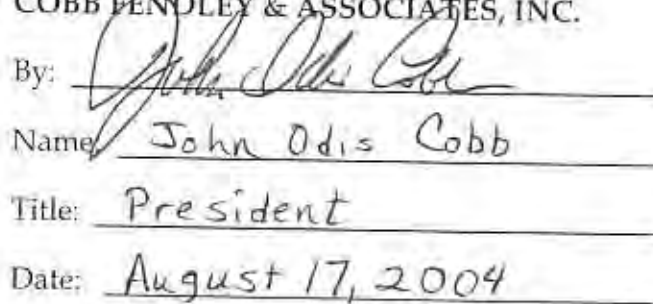 COBB PENDLEY & ASSOCIATES, INC.
By: John Odis Cobb
Name John Odis Cobb
Title: President
Date: August 17, 2004